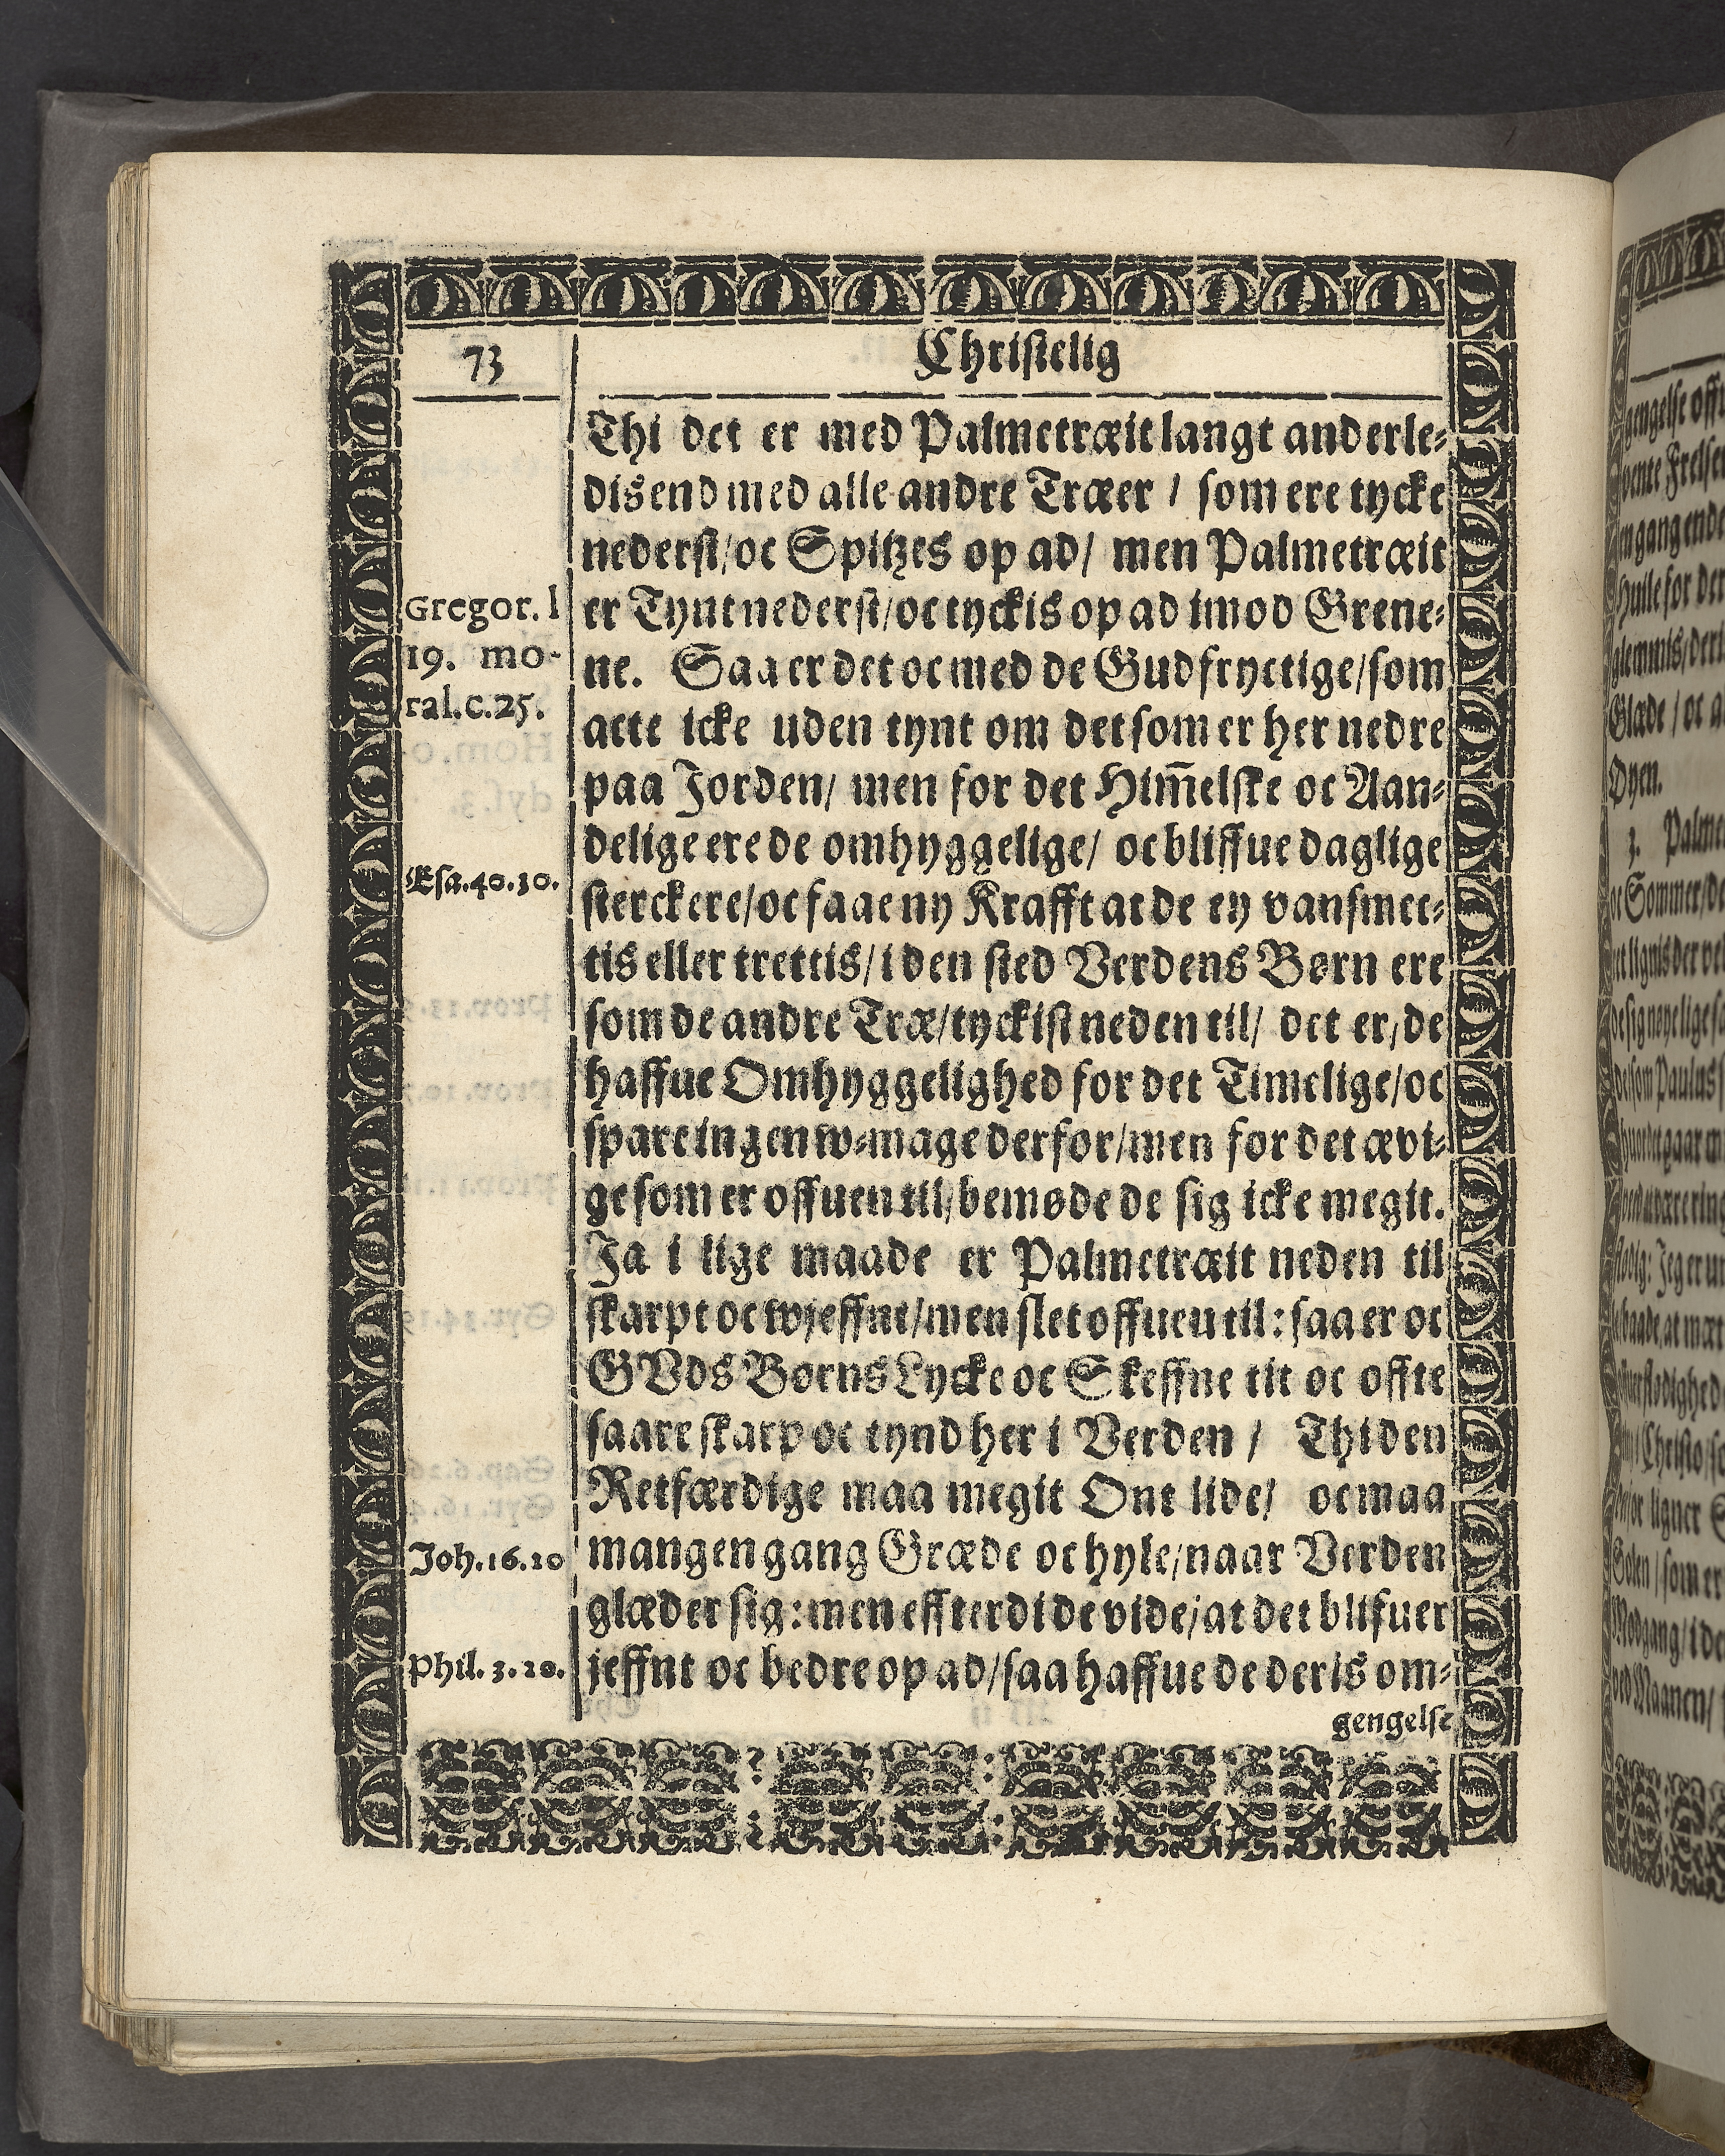 73
Christelig
Thi det er med Palmetræit langt anderle-
dis end med alle andre Træer / som ere tycke
nederst / oc Spitzes op ad / men Palmetræit
er Tynt nederst / oc tyckis op ad imod Grene-
ne. Saa er det oc med de Gudfryctige / som
acte icke uden tynt om det som er her nedre
paa Jorden / men for det Him̄elske oc Aan-
delige ere de omhyggelige / oc bliffue daglige
sterckere / oc faae ny Krafft at de ey vansmec-
tis eller trettis / i den sted Verdens Børn ere
som de andre Træ / tyckist neden til / det er / de
haffue Omhyggelighed for det Timelige / oc
spare ingen w-mage derfor / men for det ævi-
ge som er offuen til / bemøde de sig icke megit.
Ja i lige maade er Palmetræit neden til
skarpt oc wjeffnt / men slet offuen til : saa er oc
GVds Børns Lycke oc Skeffne tit oc offte
saare skarp oc tynd her i Verden / Thi den
Retfærdige maa megit Ont lide / oc maa
mangen gang Græde oc hyle / naar Verden
glæder sig : men effterdi de vide / at det blifuer
jeffnt oc bedre op ad / saa haffue de deris om-
gengelse
Gregor. l
19. mo-
ral. c. 25.
Esa. 40. 30.
Joh. 16. 20
Phil. 3. 20.